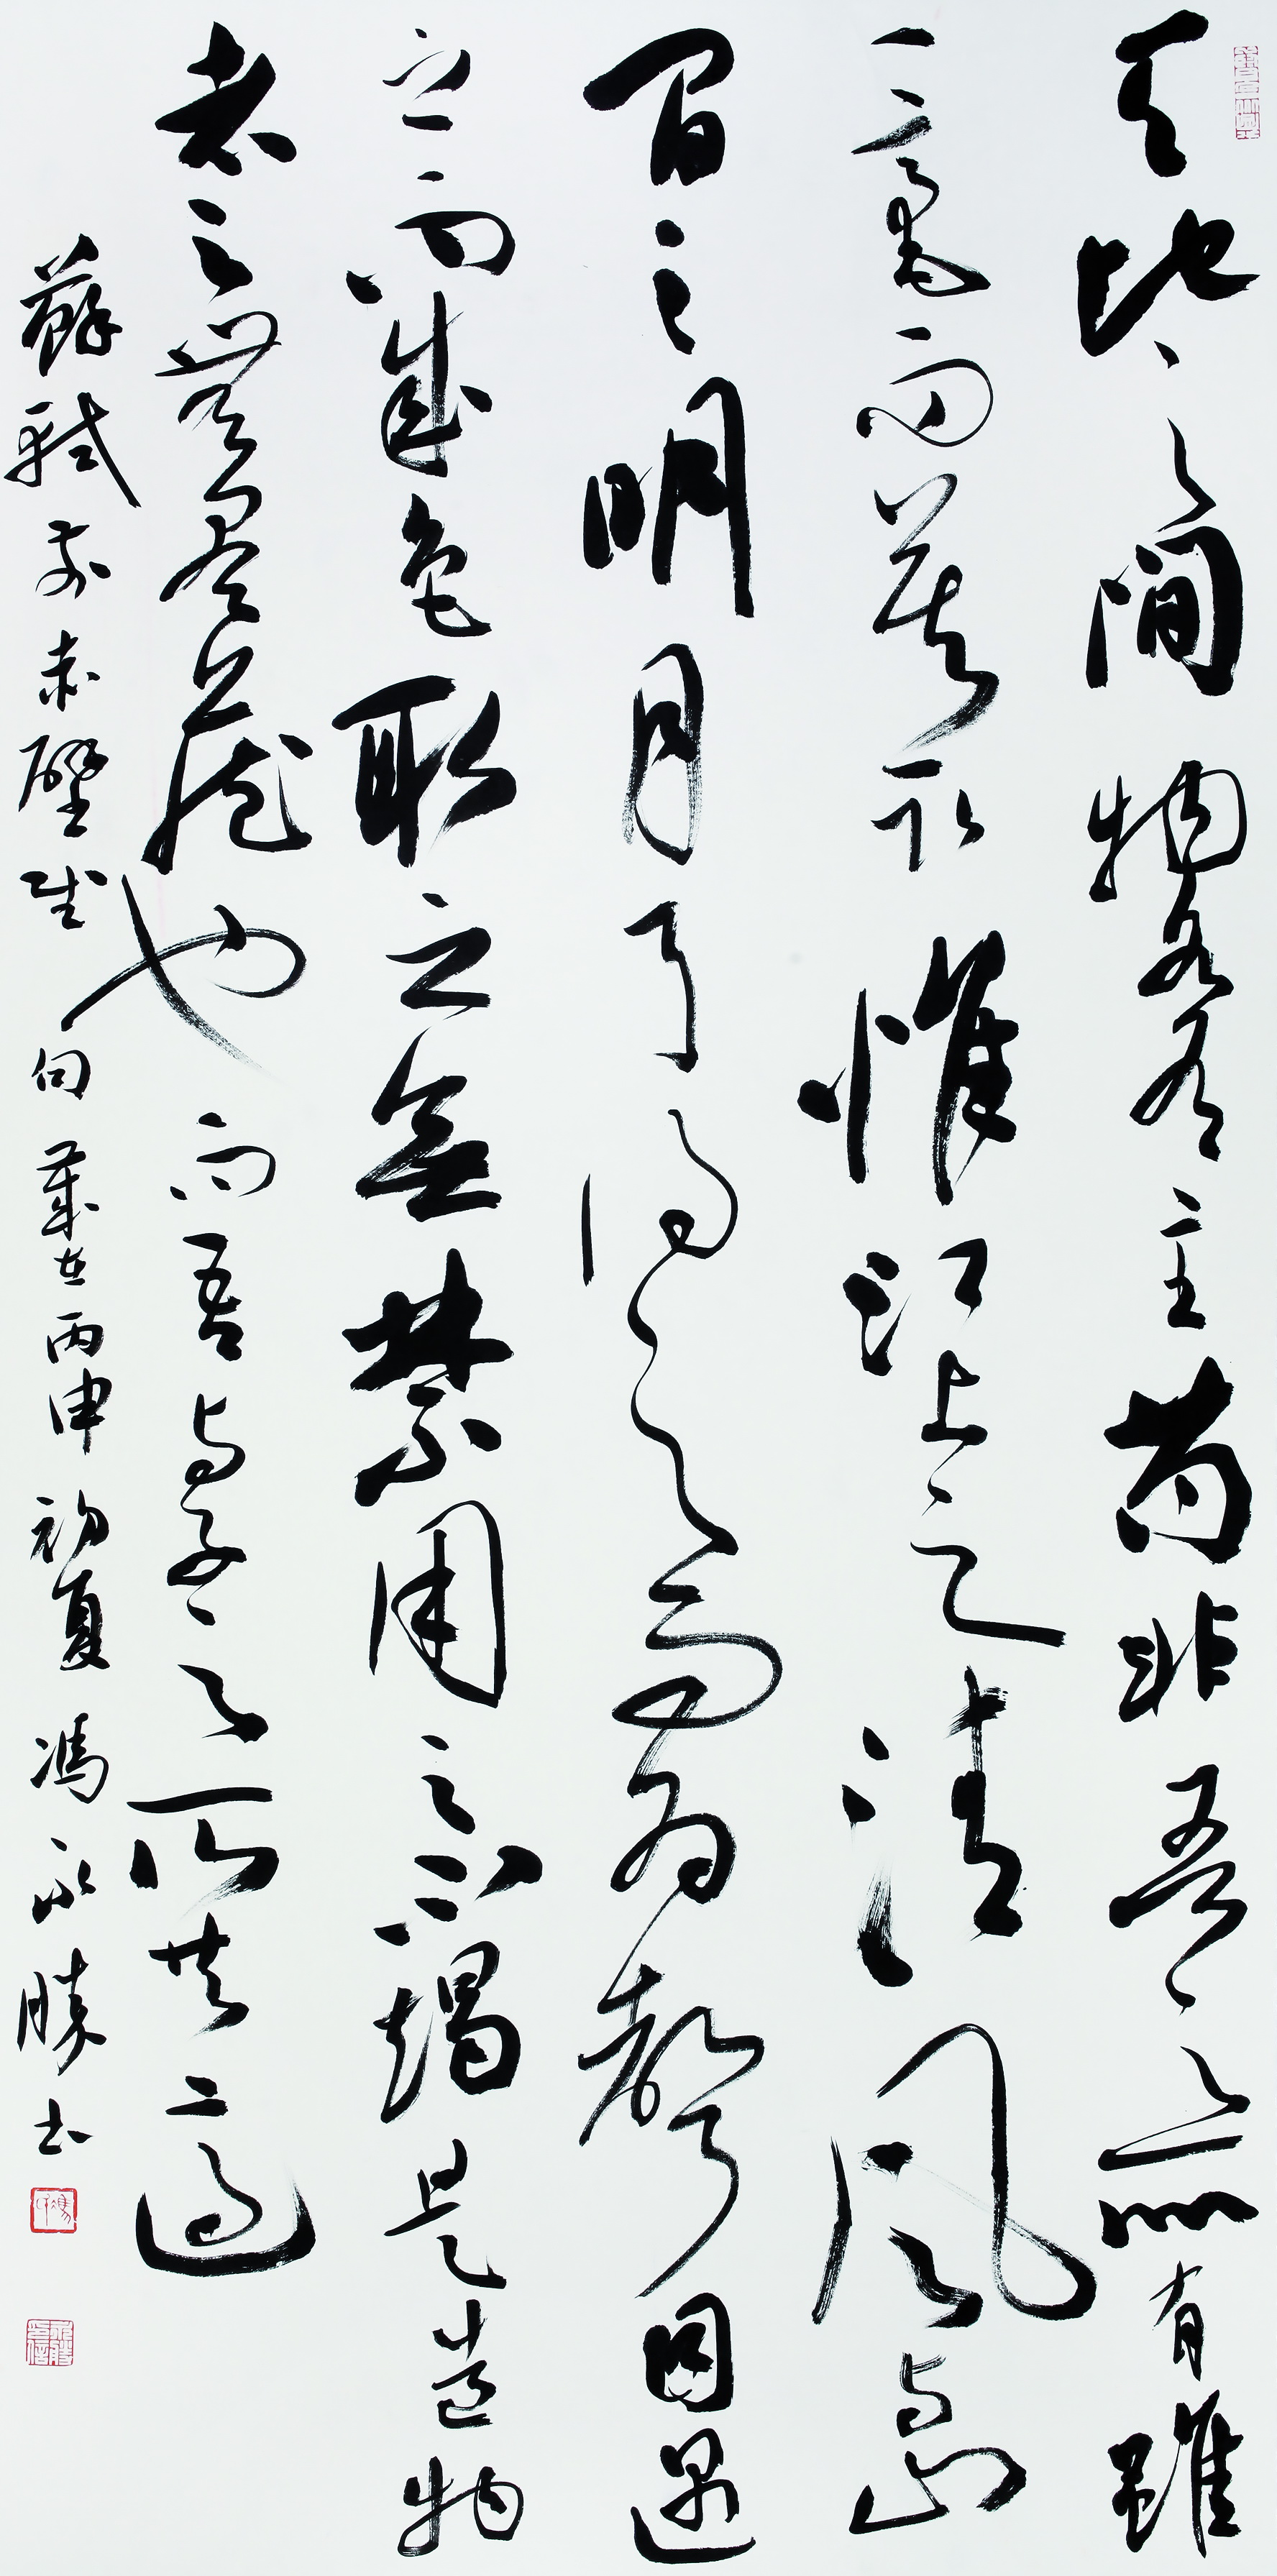 天地之間物各有主苟非吾之所有雖
一毫而莫取惟江上之清風與山
間之明月耳得之而為聲目遇
之而成色取之無禁用之不竭是造物
者之無盡藏也而吾與子之所共適
蘇軾前赤壁賦句歲在丙申初夏馮永勝書